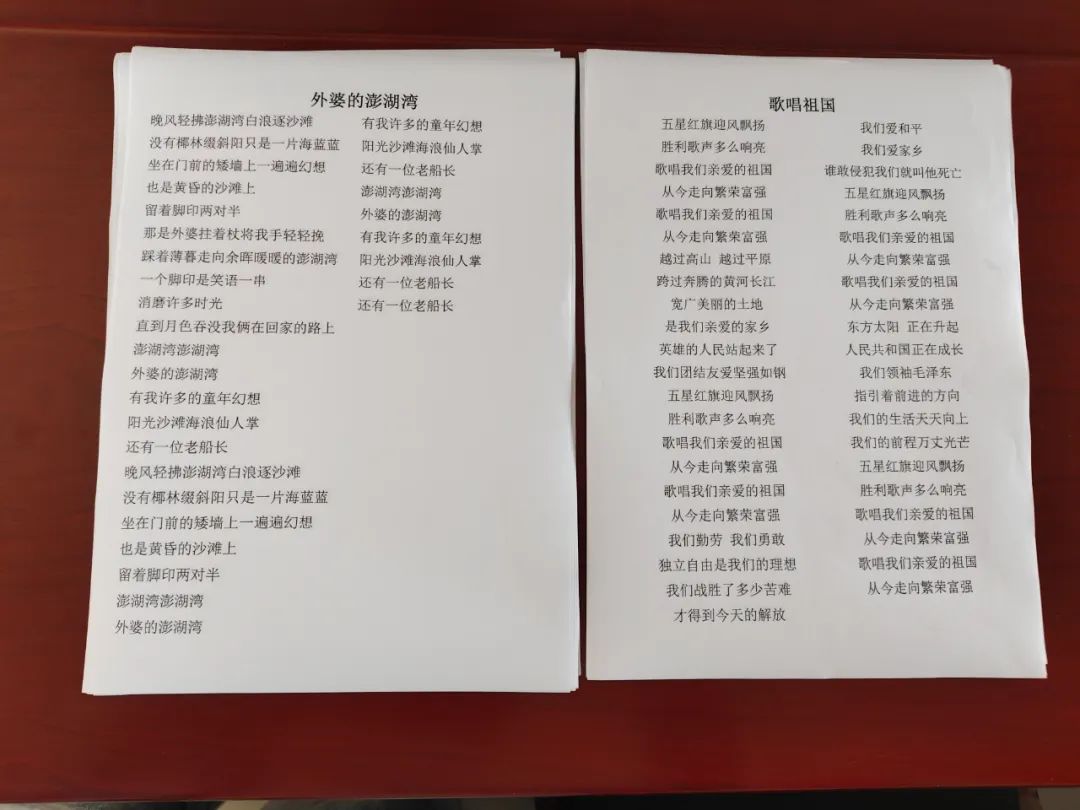 外婆的澎湖湾
晚风轻拂澎湖湾白浪逐沙滩
没有椰林缀斜阳只是一片海蓝蓝
坐在门前的矮墙上一遍遍幻想
也是黄昏的沙滩上
留着脚印两对半
那是外婆拄着杖将我手轻轻挽
踩着薄暮走向余晖暖暖的澎湖湾
一个脚印是笑语一串
消磨许多时光
直到月色吞没我俩在回家的路上
澎湖湾澎湖湾
外婆的澎湖湾
有我许多的童年幻想
阳光沙滩海浪仙人掌
还有一位老船长
晚风轻拂澎湖湾白浪逐沙滩
没有椰林缀斜阳只是一片海蓝蓝
坐在门前的矮墙上一遍遍幻想
也是黄昏的沙滩上
留着脚印两对半
澎湖湾澎湖湾
外婆的澎湖湾
有我许多的童年幻想
阳光沙滩海浪仙人掌
还有一位老船长
澎湖湾澎湖湾
外婆的澎湖湾
有我许多的童年幻想
阳光沙滩海浪仙人掌
还有一位老船长
还有一位老船长
歌唱祖国
五星红旗迎风飘扬
胜利歌声多么响亮
歌唱我们亲爱的祖国
从今走向繁荣富强
歌唱我们亲爱的祖国
从今走向繁荣富强
越过高山 越过平原
跨过奔腾的黄河长江
宽广美丽的土地
是我们亲爱的家乡
英雄的人民站起来了
我们团结友爱坚强如钢
五星红旗迎风飘扬
胜利歌声多么响亮
歌唱我们亲爱的祖国
从今走向繁荣富强
歌唱我们亲爱的祖国
从今走向繁荣富强
我们勤劳 我们勇敢
独立自由是我们的理想
我们战胜了多少苦难
才得到今天的解放
我们爱和平
我们爱家乡
谁敢侵犯我们就叫他死亡
五星红旗迎风飘扬
胜利歌声多么响亮
歌唱我们亲爱的祖国
从今走向繁荣富强
歌唱我们亲爱的祖国
从今走向繁荣富强
东方太阳 正在升起
人民共和国正在成长
我们领袖毛泽东
指引着前进的方向
我们的生活天天向上
我们的前程万丈光芒
五星红旗迎风飘扬
胜利歌声多么响亮
歌唱我们亲爱的祖国
从今走向繁荣富强
歌唱我们亲爱的祖国
从今走向繁荣富强